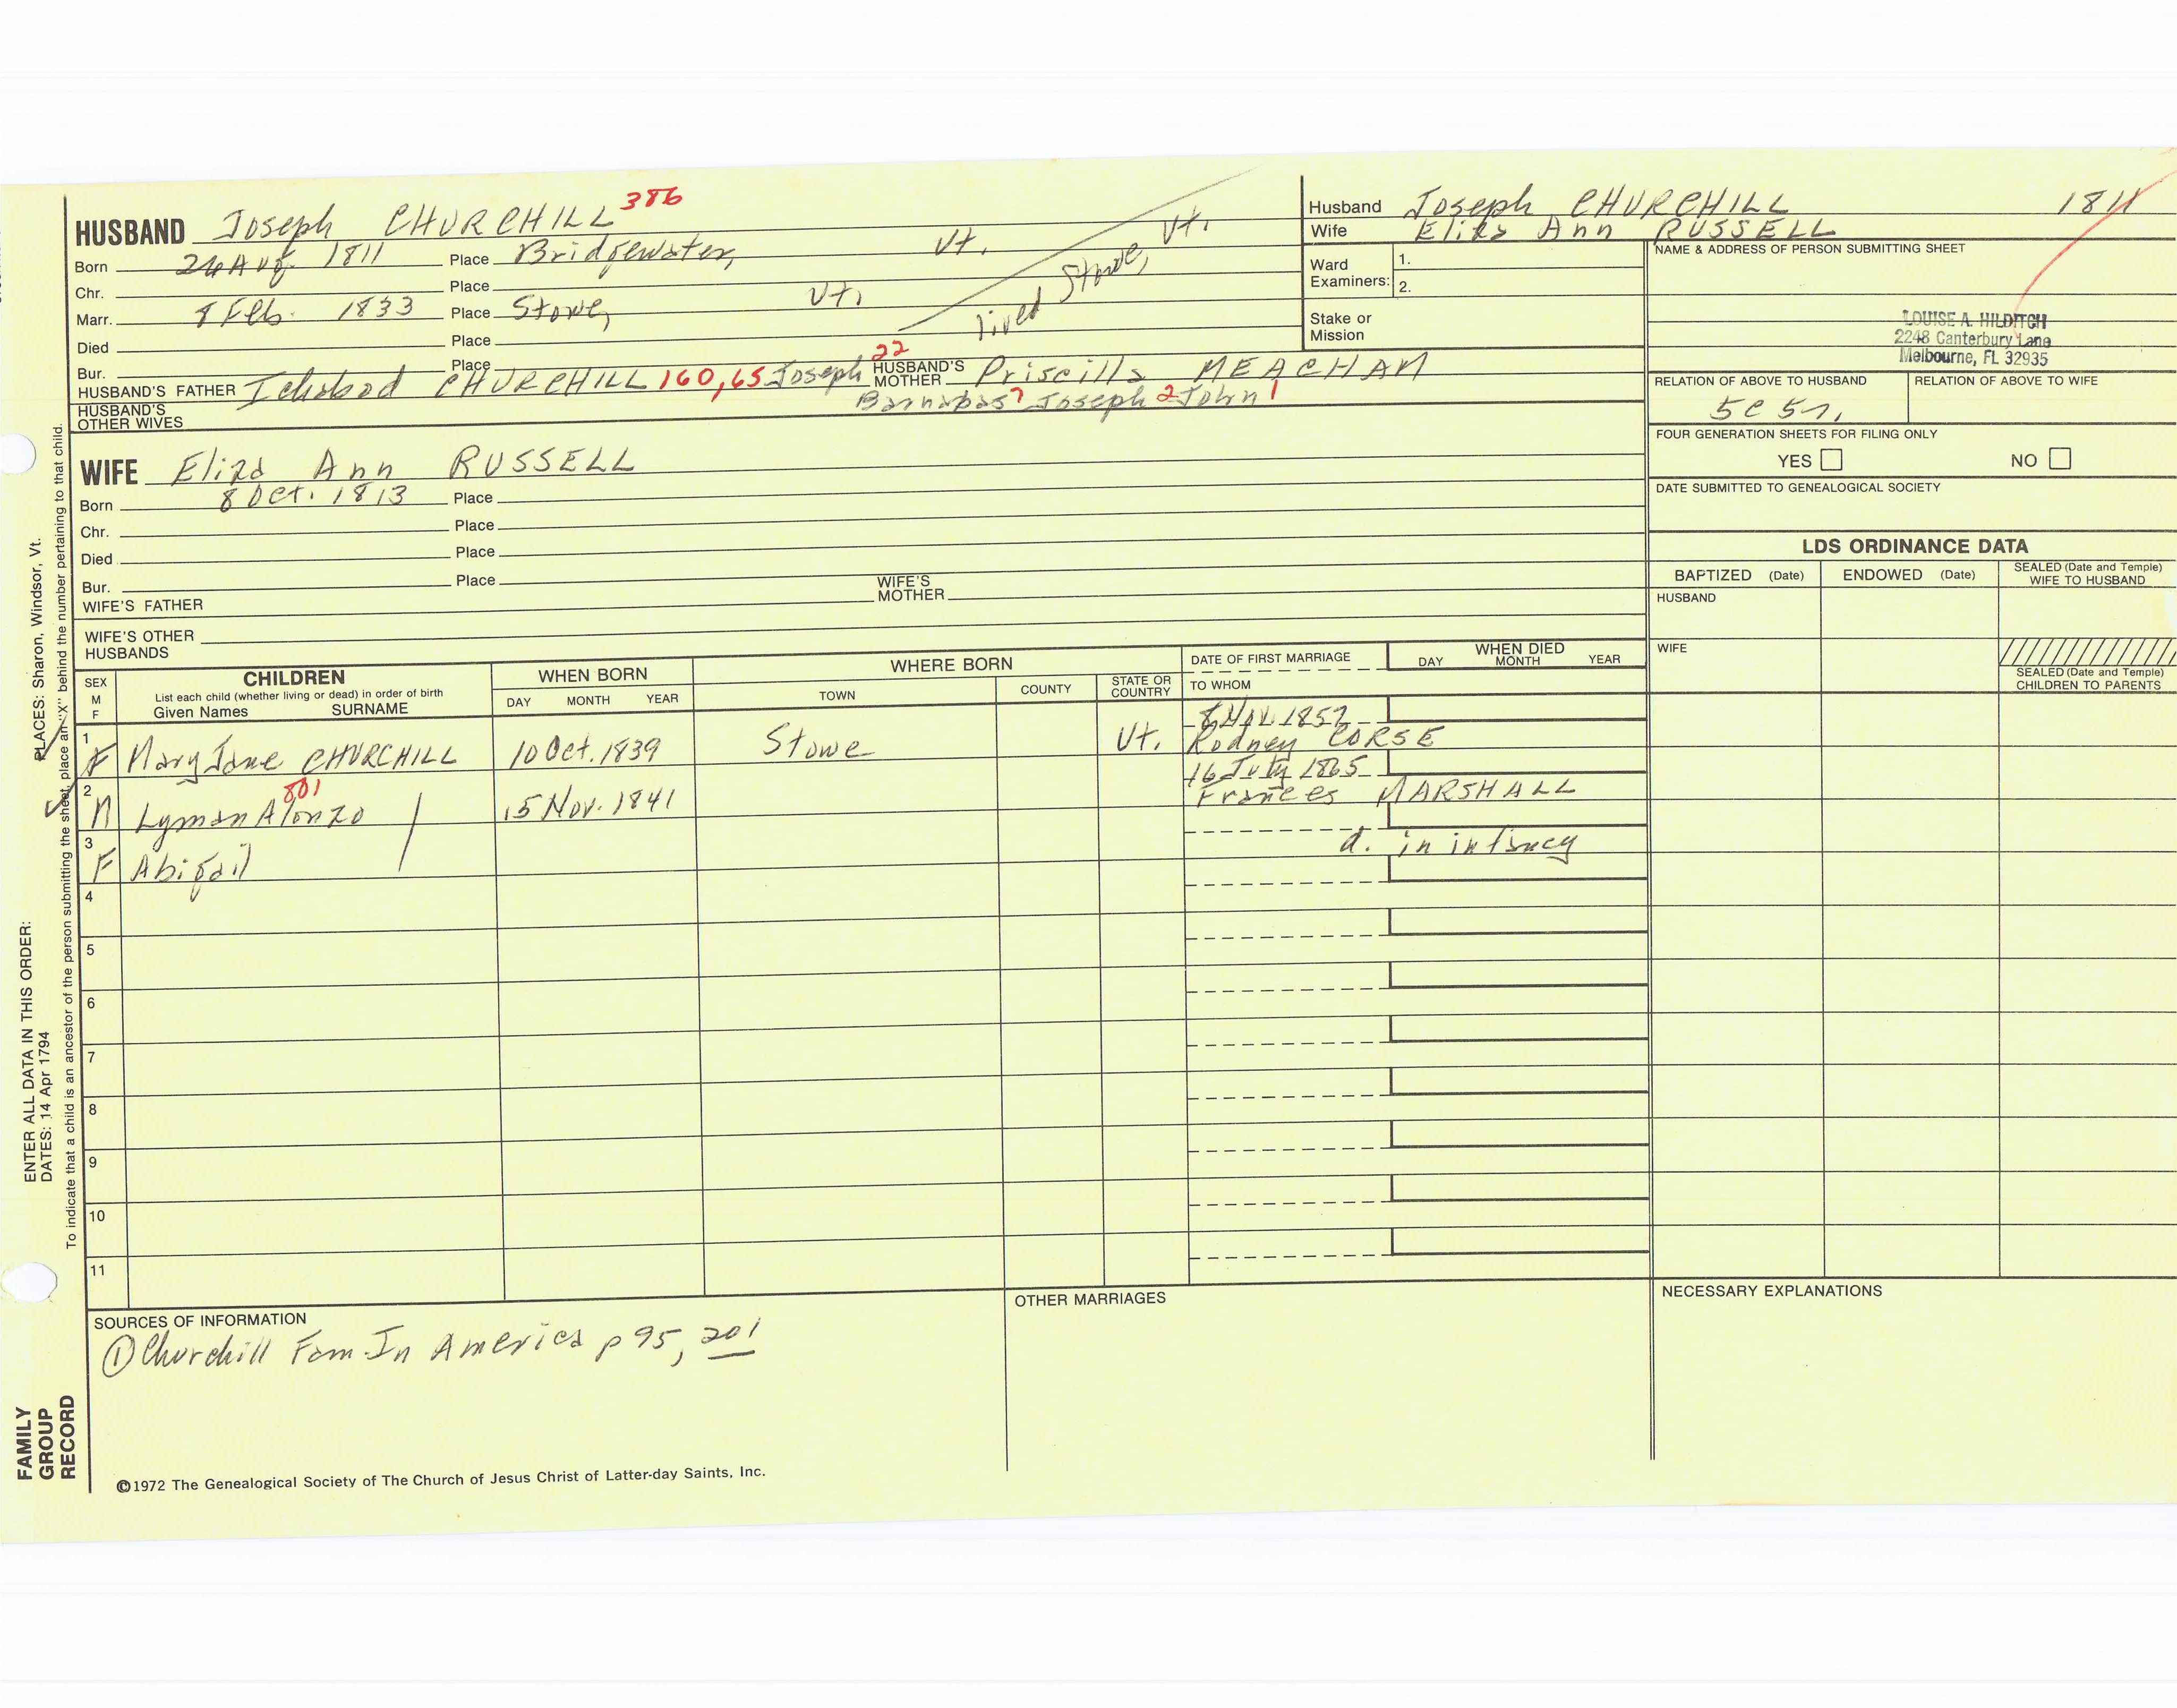 HUSBAND Joseph CHURCHILL 386
Born 26 Aug. 1811 Place Bridgewater, Vt.
Chr. Place
Marr. 8 Feb. 1833 Place Stowe, Vt.
lived Stowe, Vt.
Died Place
Bur. Place
HUSBAND'S FATHER Ichabod CHURCHILL 160, 65 Joseph 22 HUSBAND'S MOTHER Priscilla MEACHAM
Barnabas 7 Joseph 2 John 1
HUSBAND'S OTHER WIVES
Husband Joseph CHURCHILL 1811
Wife Eliza Ann RUSSELL
Ward Examiners: 1.
2.
Stake or Mission
NAME & ADDRESS OF PERSON SUBMITTING SHEET
LOUISE A. HILDITCH
2248 Canterbury Lane
Melbourne, FL 32935
RELATION OF ABOVE TO HUSBAND RELATION OF ABOVE TO WIFE
5c 5r,
FOUR GENERATION SHEETS FOR FILING ONLY
YES NO
DATE SUBMITTED TO GENEALOGICAL SOCIETY
WIFE Eliza Ann RUSSELL
Born 8 Oct. 1813 Place
Chr. Place
Died Place
Bur. Place
WIFE'S FATHER WIFE'S MOTHER
WIFE'S OTHER HUSBANDS
LDS ORDINANCE DATA
BAPTIZED (Date) ENDOWED (Date) SEALED (Date and Temple) WIFE TO HUSBAND
HUSBAND
WIFE
SEALED (Date and Temple) CHILDREN TO PARENTS
SEX M F
CHILDREN
List each child (whether living or dead) in order of birth
Given Names SURNAME
WHEN BORN
DAY MONTH YEAR
WHERE BORN
TOWN COUNTY STATE OR COUNTRY
DATE OF FIRST MARRIAGE
TO WHOM
WHEN DIED
DAY MONTH YEAR
8 Nov. 1857
1 F Mary Jane CHURCHILL 10 Oct. 1839 Stowe Vt. Rodney CORSE
16 July 1865
2 M Lyman Alonzo 801 15 Nov. 1841 Frances MARSHALL
3 F Abigail d. in infancy
4
5
6
7
8
9
10
11
SOURCES OF INFORMATION
① Churchill Fam. In America p 95, 201
OTHER MARRIAGES
NECESSARY EXPLANATIONS
©1972 The Genealogical Society of The Church of Jesus Christ of Latter-day Saints, Inc.
FAMILY GROUP RECORD
ENTER ALL DATA IN THIS ORDER:
DATES: 14 Apr 1794
PLACES: Sharon, Windsor, Vt.
To indicate that a child is an ancestor of the person submitting the sheet, place an "X" behind the number pertaining to that child.